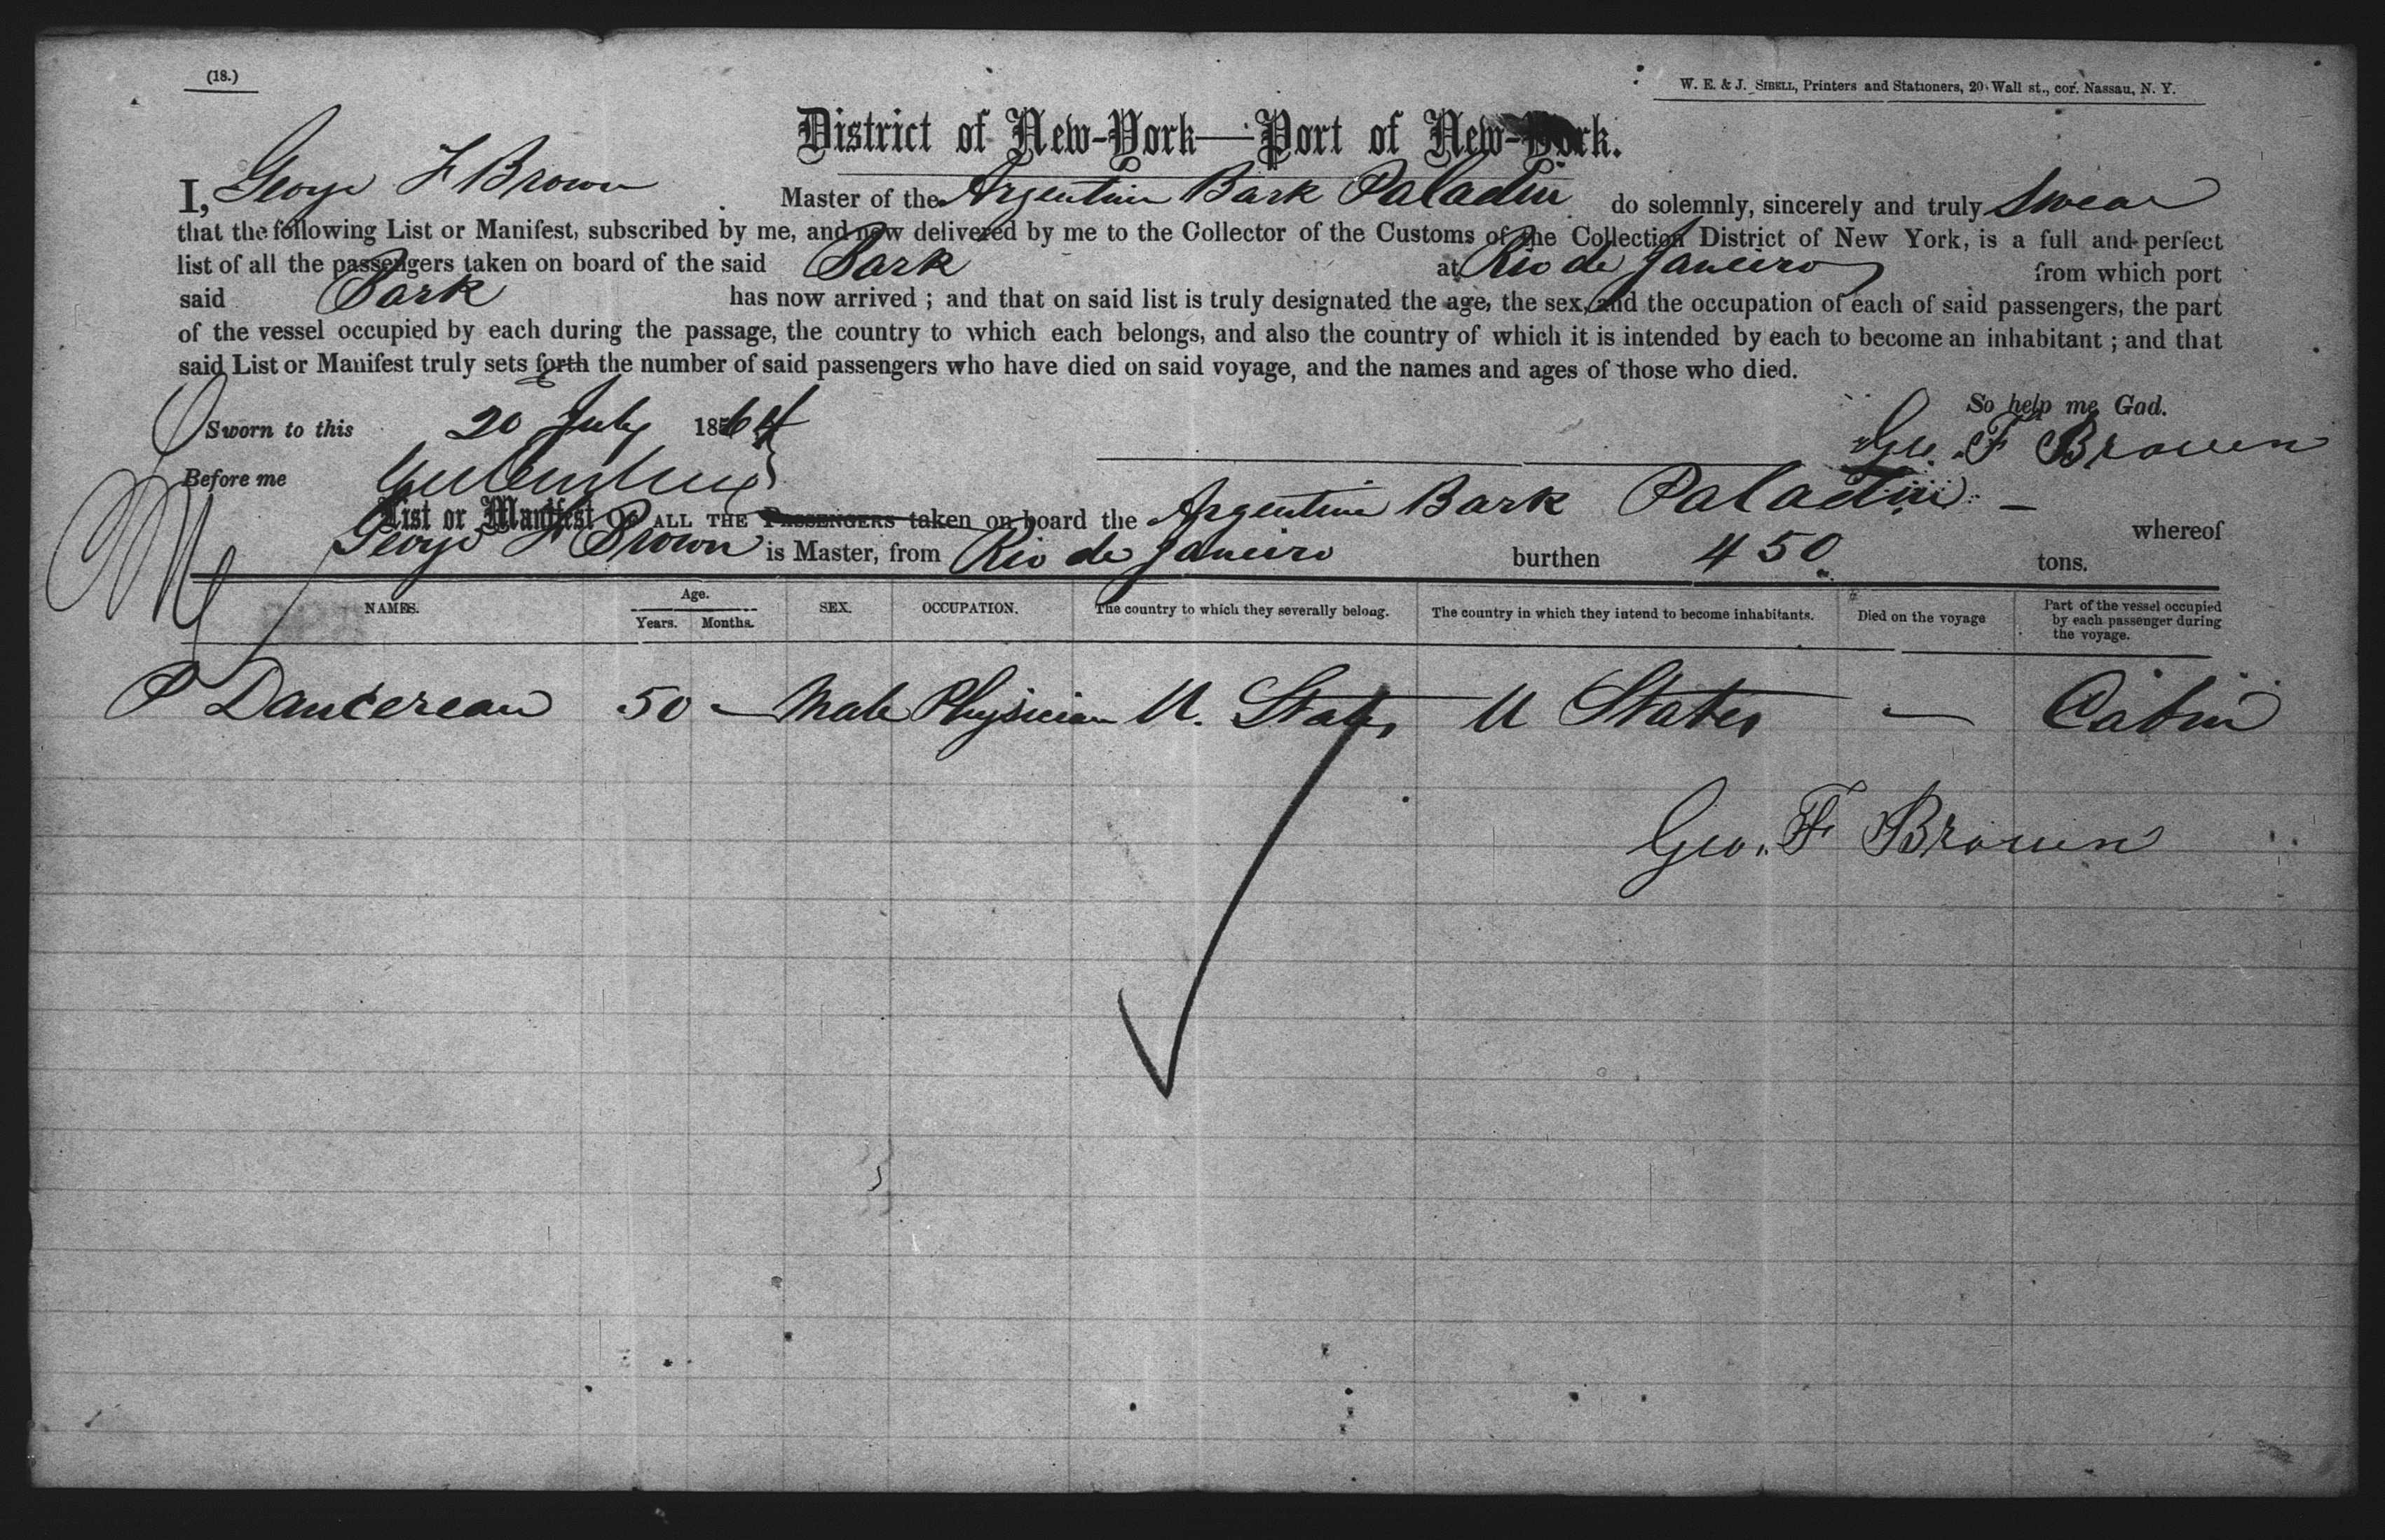 (18.)
W. E. & J. SIBELL, Printers and Stationers, 20 Wall st., cor. Nassau, N. Y.
District of New-York—Port of New-York.
I, George F Brown Master of the Argentine Bark Paladin do solemnly, sincerely and truly Swear
that the following List or Manifest, subscribed by me, and now delivered by me to the Collector of the Customs of the Collection District of New York, is a full and perfect
list of all the passengers taken on board of the said Bark at Rio de Janeiro from which port
said Bark has now arrived ; and that on said list is truly designated the age, the sex, and the occupation of each of said passengers, the part
of the vessel occupied by each during the passage, the country to which each belongs, and also the country of which it is intended by each to become an inhabitant ; and that
said List or Manifest truly sets forth the number of said passengers who have died on said voyage, and the names and ages of those who died.
So help me God.
Sworn to this 20 July 1864
Geo. F Brown
Before me
List or Manifest OF ALL THE PASSENGERS taken on board the Argentine Bark Paladin — whereof
George F Brown is Master, from Rio de Janeiro burthen 450 tons.
NAMES. Age. Years. Months. SEX. OCCUPATION. The country to which they severally belong. The country in which they intend to become inhabitants. Died on the voyage Part of the vessel occupied by each passenger during the voyage.
P Dancereau 50 – Male Physician U. States U States — Cabin
Geo. F Brown